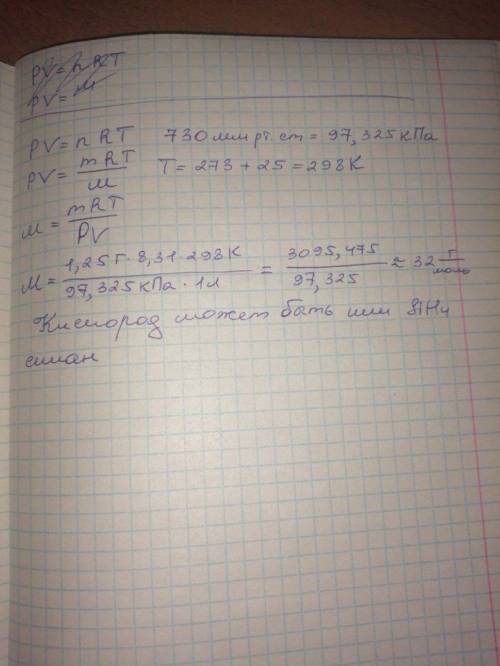 PV = nRT
PV = M
PV = nRT 730 мм рт. ст = 97,325 кПа
PV = mRT/M T = 273 + 25 = 298K
M = mRT/PV
M = 1,25г · 8,31 · 298K / 97,325 кПа · 1л = 3095,475 / 97,325 ≈ 32 г/моль
Кислород может быть или SiH4
силан